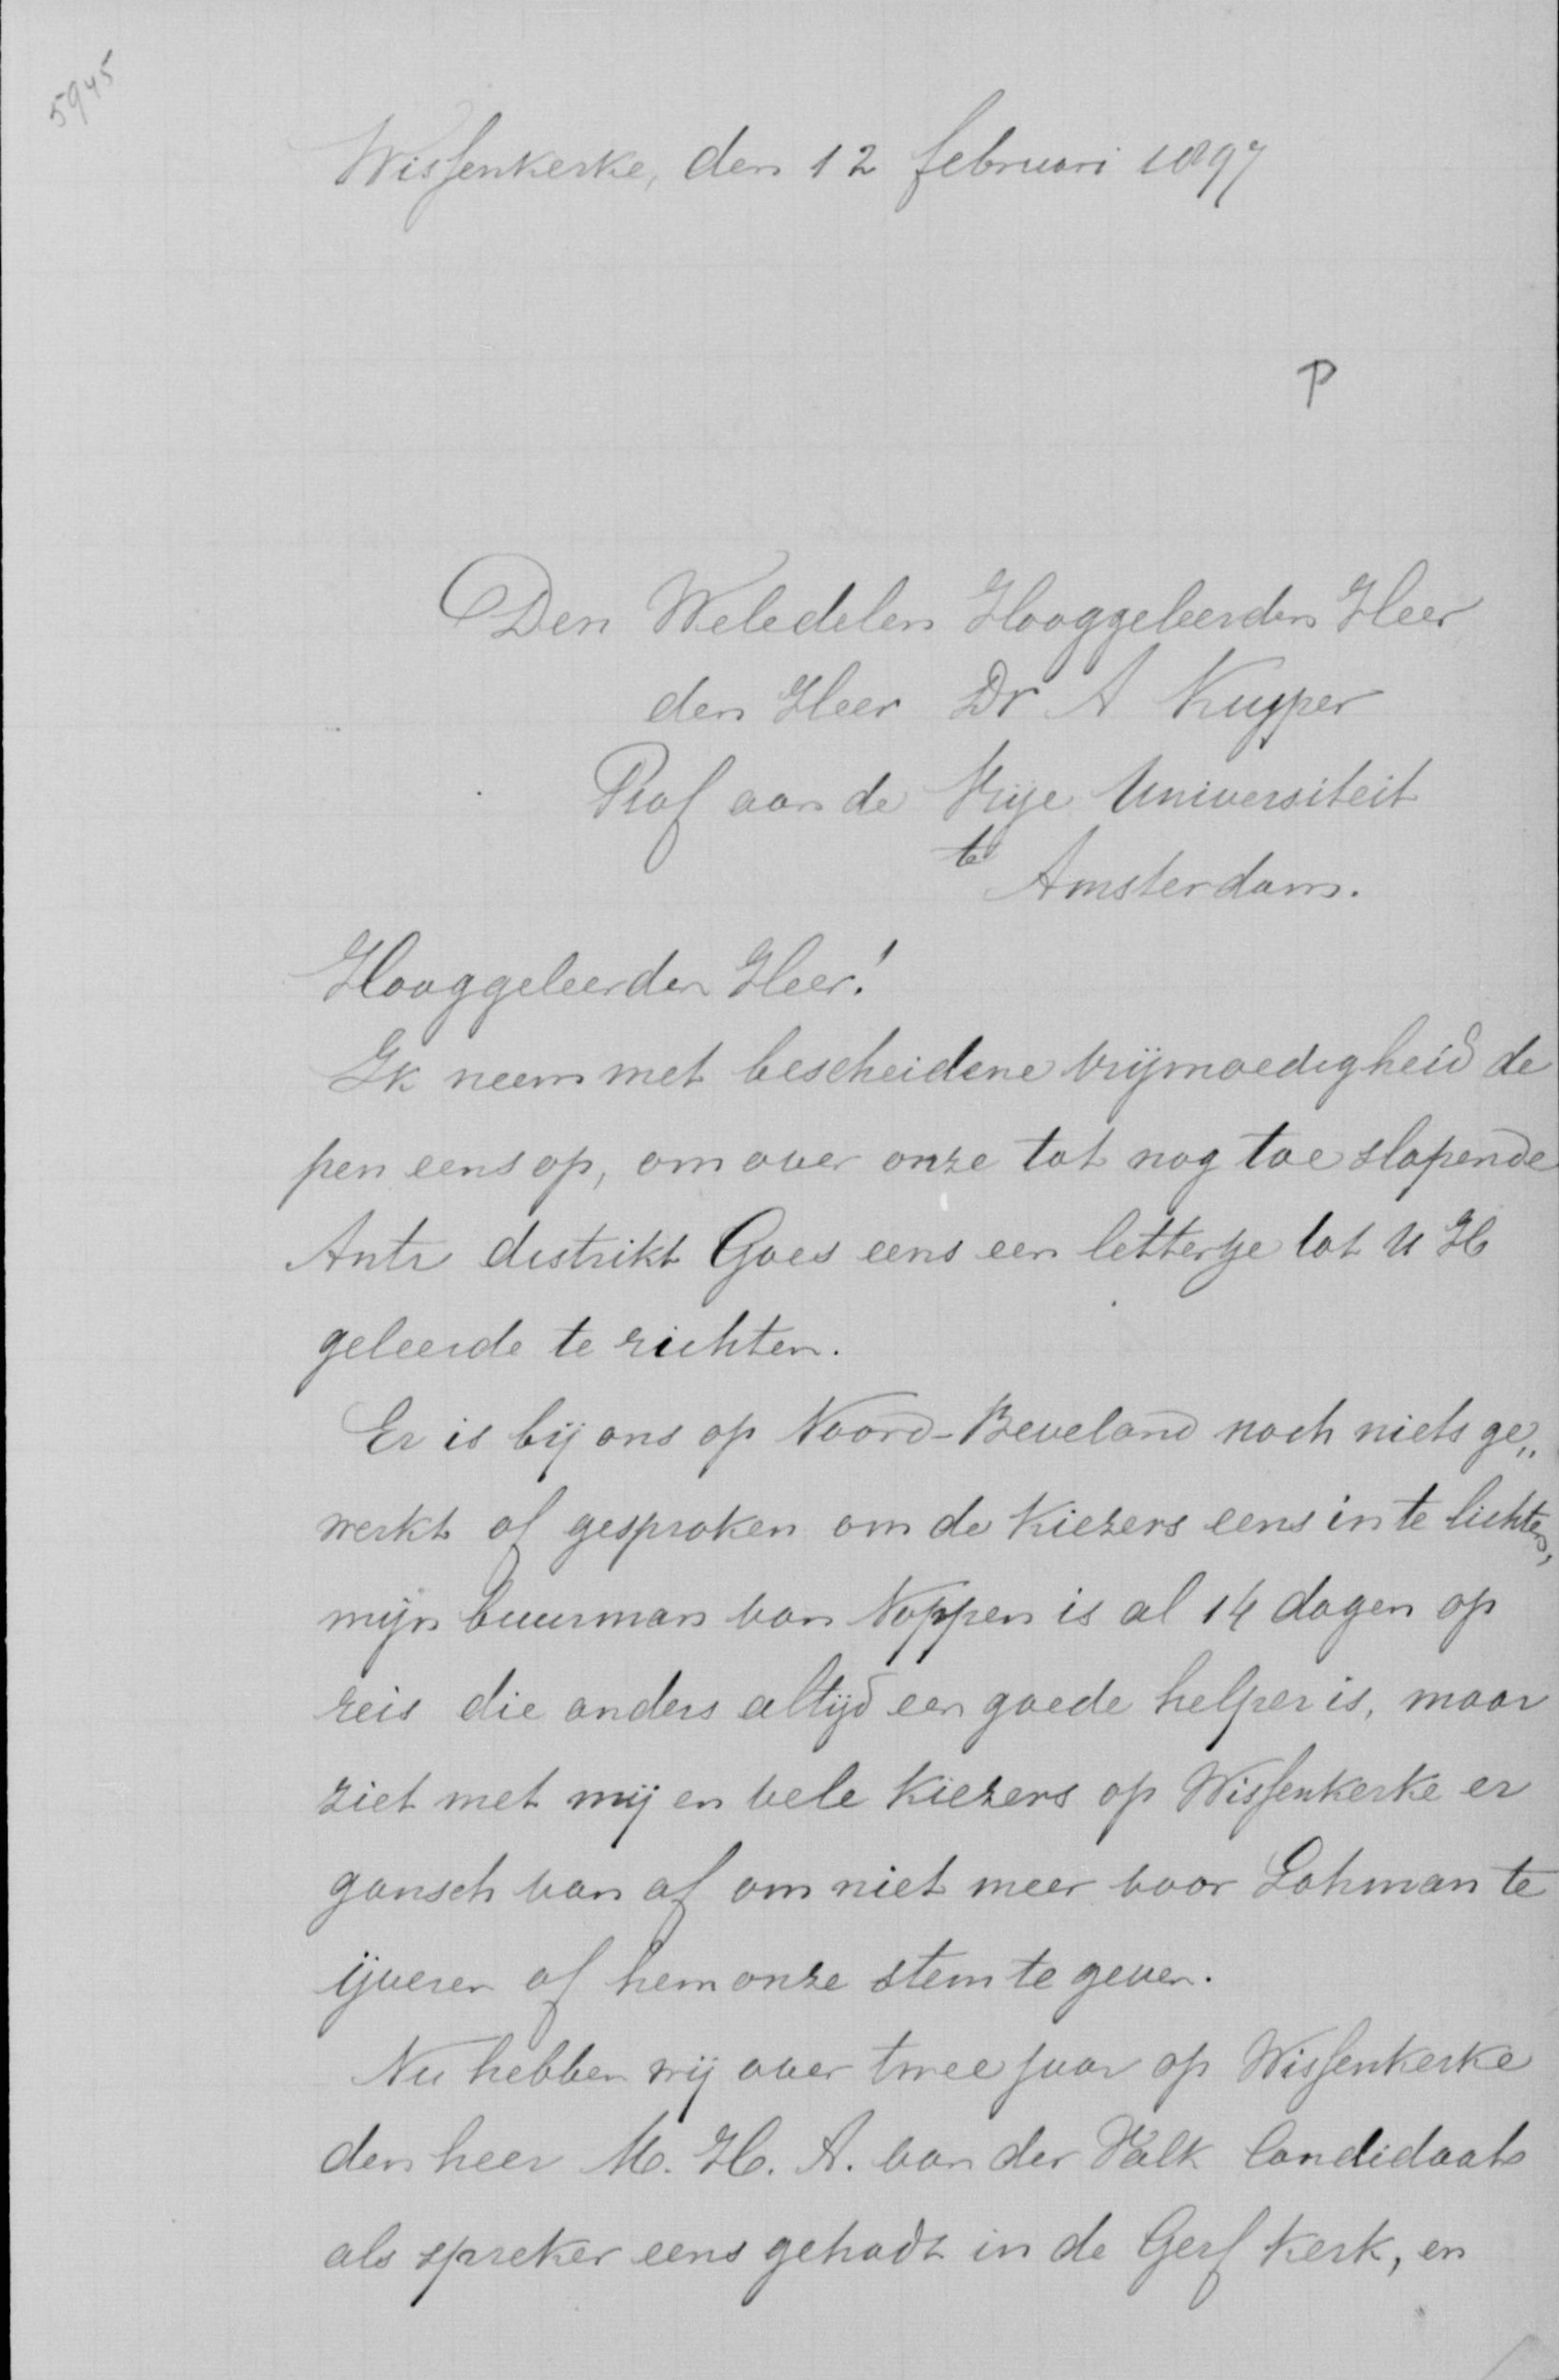 5945
Wissenkerke, den 12 februari 1897
P
Den Weledelen Hooggeleerden Heer
den Heer Dr A Kuyper
Prof aan de Vrije Universiteit
te
Amsterdam.
Hooggeleerden Heer!
Ik neem met bescheidene vrijmoedigheid de
pen eens op, om over onze tot nog toe slapende
Antr distrikt Goes eens een lettertje tot U H
geleerde te richten.
Er is bij ons op Noord-Beveland noch niets ge„
werkt of gesproken om de Kiezers eens in te lichten,
mijn buurman van Noppen is al 14 dagen op
reis die anders altijd een goede helper is, maar
ziet met mij en vele Kiezers op Wissenkerke er
gansch van af om niet meer voor Lohman te
ijveren of hem onze stem te geven.
Nu hebben wij over twee jaar op Wissenkerke
den heer M. H. A. van der Valk Candidaat
als spreker eens gehadt in de Gerf Kerk, en